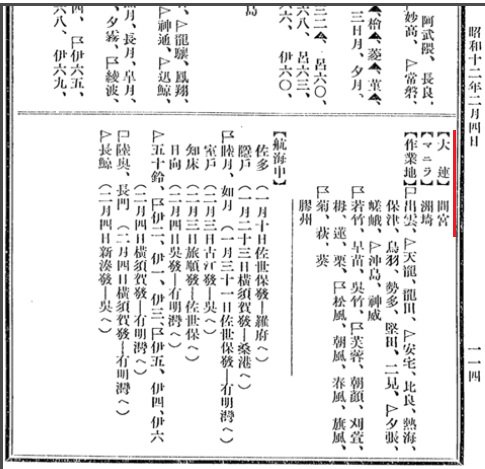 昭和十二年二月四日
一一四
阿武隈、長良、
妙高、△常磐、
檜、菱、菫、
三日月、夕月、
呂六〇、
六八、呂六三、
六六、伊六〇、
島
△龍驤、鳳翔、
△神通、△迅鯨、
月、長月、皐月、
夕霧、卩綾波、
四、卩伊六五、
六八、伊六九、
【大連】間宮
【マニラ】洲埼
【作業地】卩出雲、△天龍、龍田、△安宅、比良、熱海、
保津、鳥羽、勢多、堅田、二見、△夕張、
嵯峨、△沖島、神威
卩若竹、早苗、吳竹、卩芙蓉、朝顏、刈萱、
栂、蓮、栗、卩松風、朝風、春風、旗風、
卩菊、萩、葵
膠州
【航海中】
佐多(一月十日佐世保發―羅府へ)
隱戶(一月二十三日橫須賀發―桑港へ)
卩睦月、如月(一月三十一日佐世保發―有明灣へ)
室戶(二月三日古江發―吳へ)
知床(二月三日旅順發―佐世保へ)
日向(二月四日吳發―有明灣へ)
△五十鈴、卩伊二、伊一、伊三、卩伊五、伊四、伊六
(二月四日橫須賀發―有明灣へ)
卩陸奧、長門(二月四日橫須賀發―有明灣へ)
△長鯨(二月四日新湊發―吳へ)